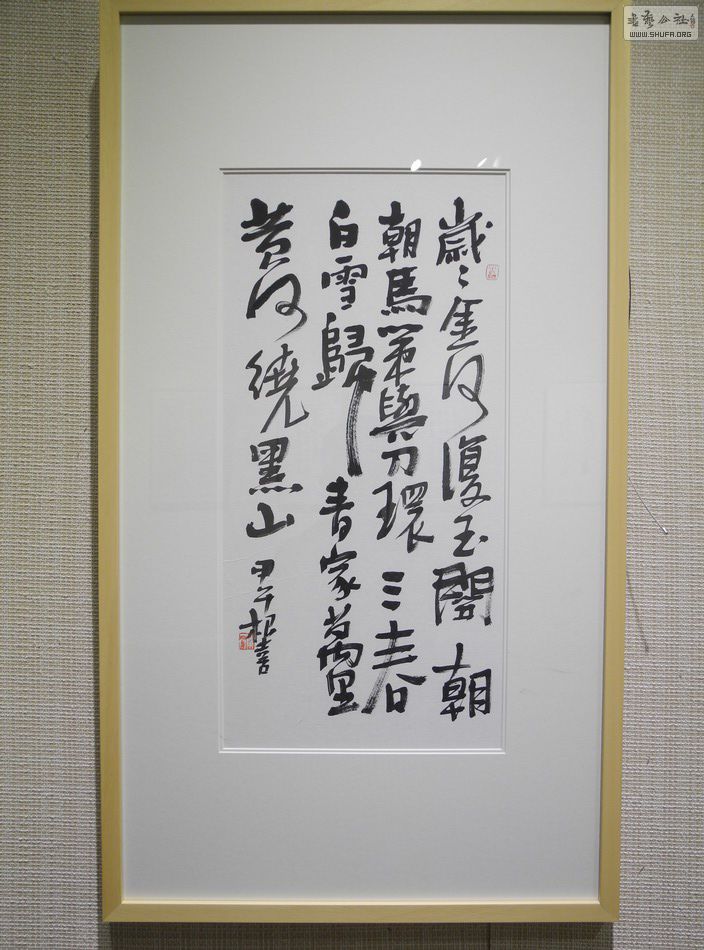 歲〻金河復玉關朝
朝馬策與刀環三春
白雪歸青冢萬里
黃河繞黑山
甲午 書
書藝公社
WWW.SHUFA.ORG